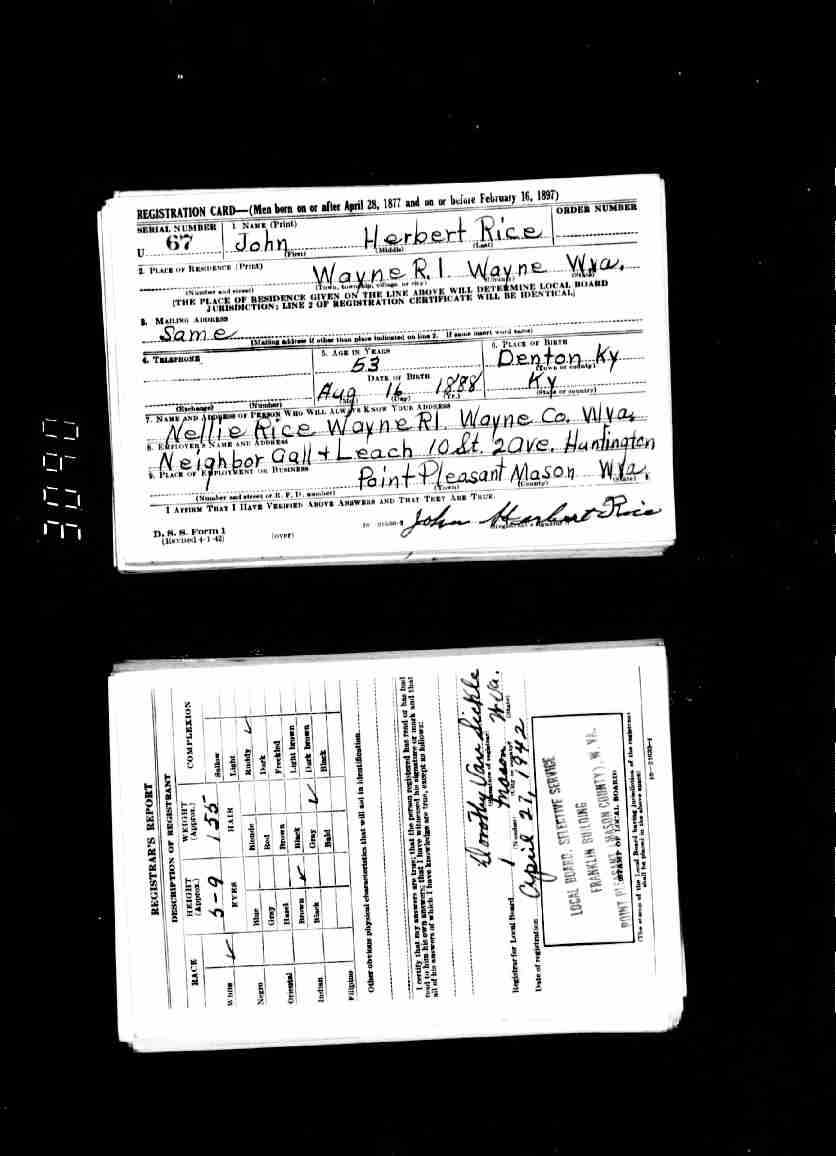 REGISTRATION CARD—(Men born on or after April 28, 1877 and on or before February 16, 1897)
SERIAL NUMBER 1. NAME (Print) ORDER NUMBER
U 67 John Herbert Rice
(First) (Middle) (Last)
2. PLACE OF RESIDENCE (Print)
Wayne R. 1. Wayne W.Va.
(Number and street) (Town, township, village or city) (County) (State)
[THE PLACE OF RESIDENCE GIVEN ON THE LINE ABOVE WILL DETERMINE LOCAL BOARD
JURISDICTION; LINE 2 OF REGISTRATION CERTIFICATE WILL BE IDENTICAL]
3. MAILING ADDRESS
Same
[Mailing address if other than place indicated on line 2. If same insert word same]
4. TELEPHONE 5. AGE IN YEARS 6. PLACE OF BIRTH
53 Denton Ky
(Town or county)
DATE OF BIRTH
Aug 16 1888 Ky
(Exchange) (Number) (Mo.) (Day) (Yr.) (State or country)
7. NAME AND ADDRESS OF PERSON WHO WILL ALWAYS KNOW YOUR ADDRESS
Nellie Rice Wayne R1. Wayne Co. W.Va.
8. EMPLOYER'S NAME AND ADDRESS
Neighbor Gall + Leach 10 St. 2 ave. Huntington
9. PLACE OF EMPLOYMENT OR BUSINESS
Point Pleasant Mason W.Va.
(Number and street or R. F. D. number) (Town) (County) (State)
I AFFIRM THAT I HAVE VERIFIED ABOVE ANSWERS AND THAT THEY ARE TRUE.
D. S. S. Form 1
(Revised 4-1-42) (over) John Herbert Rice
(Registrant's signature)
3090
REGISTRAR'S REPORT
DESCRIPTION OF REGISTRANT
RACE HEIGHT (Approx.) WEIGHT (Approx.) COMPLEXION
5-9 155 Sallow
White ✓ EYES HAIR Light
Blue Blonde Ruddy ✓
Negro Gray Red Dark
Hazel Brown Freckled
Oriental Brown ✓ Black Light brown
Black Gray ✓ Dark brown
Indian Bald Black
Filipino
Other obvious physical characteristics that will aid in identification
I certify that my answers are true; that the person registered has read or has had
read to him his own answers; that I have witnessed his signature or mark and that
all of his answers of which I have knowledge are true, except as follows:
Dorothy Van Sickle
(Signature of registrar)
Registrar for Local Board 1 Mason W.Va.
(Number) (City or county) (State)
Date of registration April 27, 1942
LOCAL BOARD, SELECTIVE SERVICE
FRANKLIN BUILDING
POINT PLEASANT (MASON COUNTY), W. VA.
(STAMP OF LOCAL BOARD)
(The stamp of the Local Board having jurisdiction of the registrant
shall be placed in the above space)